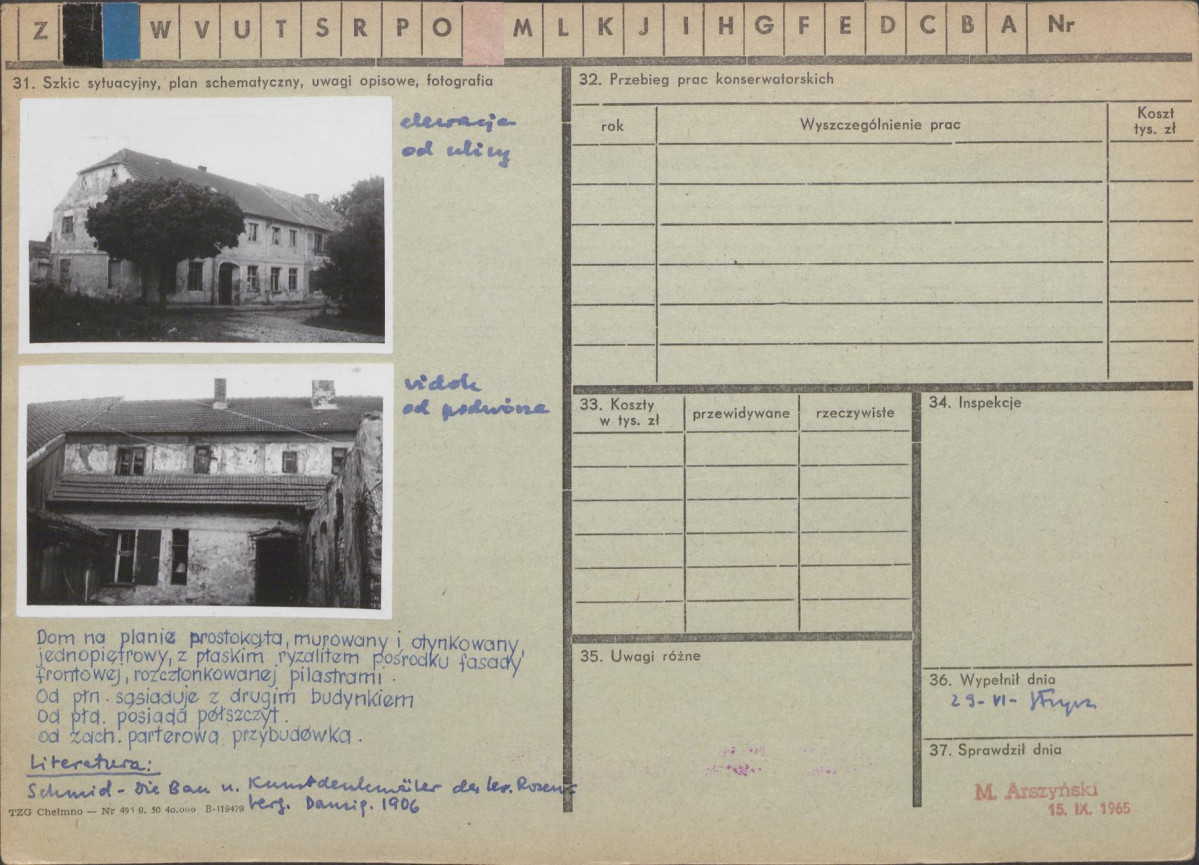 Z W V U T S R P O M L K J I H G F E D C B A Nr
31. Szkic sytuacyjny, plan schematyczny, uwagi opisowe, fotografia
elewacja
od ulicy
widok
od podwórza
Dom na planie prostokąta, murowany i otynkowany,
jednopiętrowy, z płaskim ryzalitem pośrodku fasady
frontowej, rozczłonkowanej pilastrami.
Od płn. sąsiaduje z drugim budynkiem
od płd. posiada półszczyt.
od zach. parterową przybudówka.
Literatura:
Schmid - Die Bau u. Kunstdenkmäler des kr. Rosen-
berg. Danzig. 1906
TZG Chełmno — Nr 9. 50 40.000 B-119479
32. Przebieg prac konserwatorskich
rok
Wyszczególnienie prac
Koszt
tys. zł
33. Koszty
w tys. zł
przewidywane
rzeczywiste
34. Inspekcje
35. Uwagi różne
36. Wypełnił dnia
29-VI-
37. Sprawdził dnia
M. Arszyński
15. IX. 1965